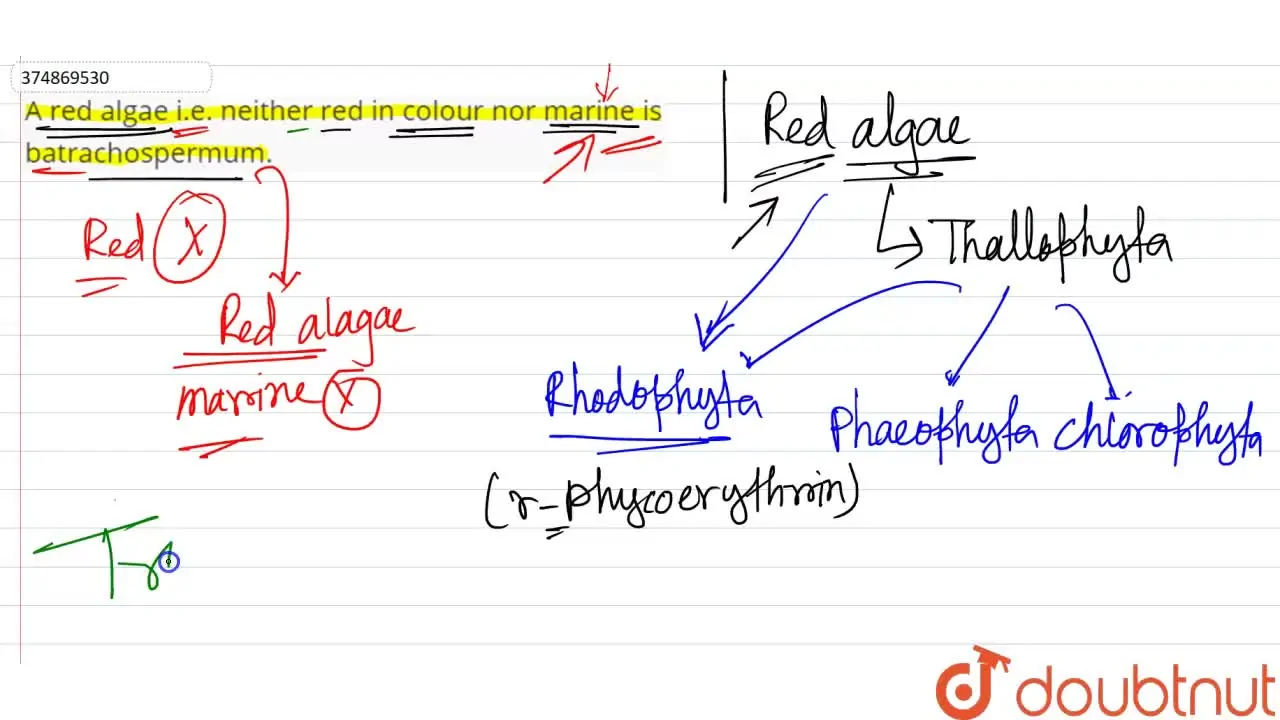 374869530
A red algae i.e. neither red in colour nor marine is
batrachospermum.
Red X
Red alagae
marine X
Red algae
Thallophyta
Rhodophyta
Phaeophyta chlorophyta
(r-phycoerythrin)
Tr
doubtnut